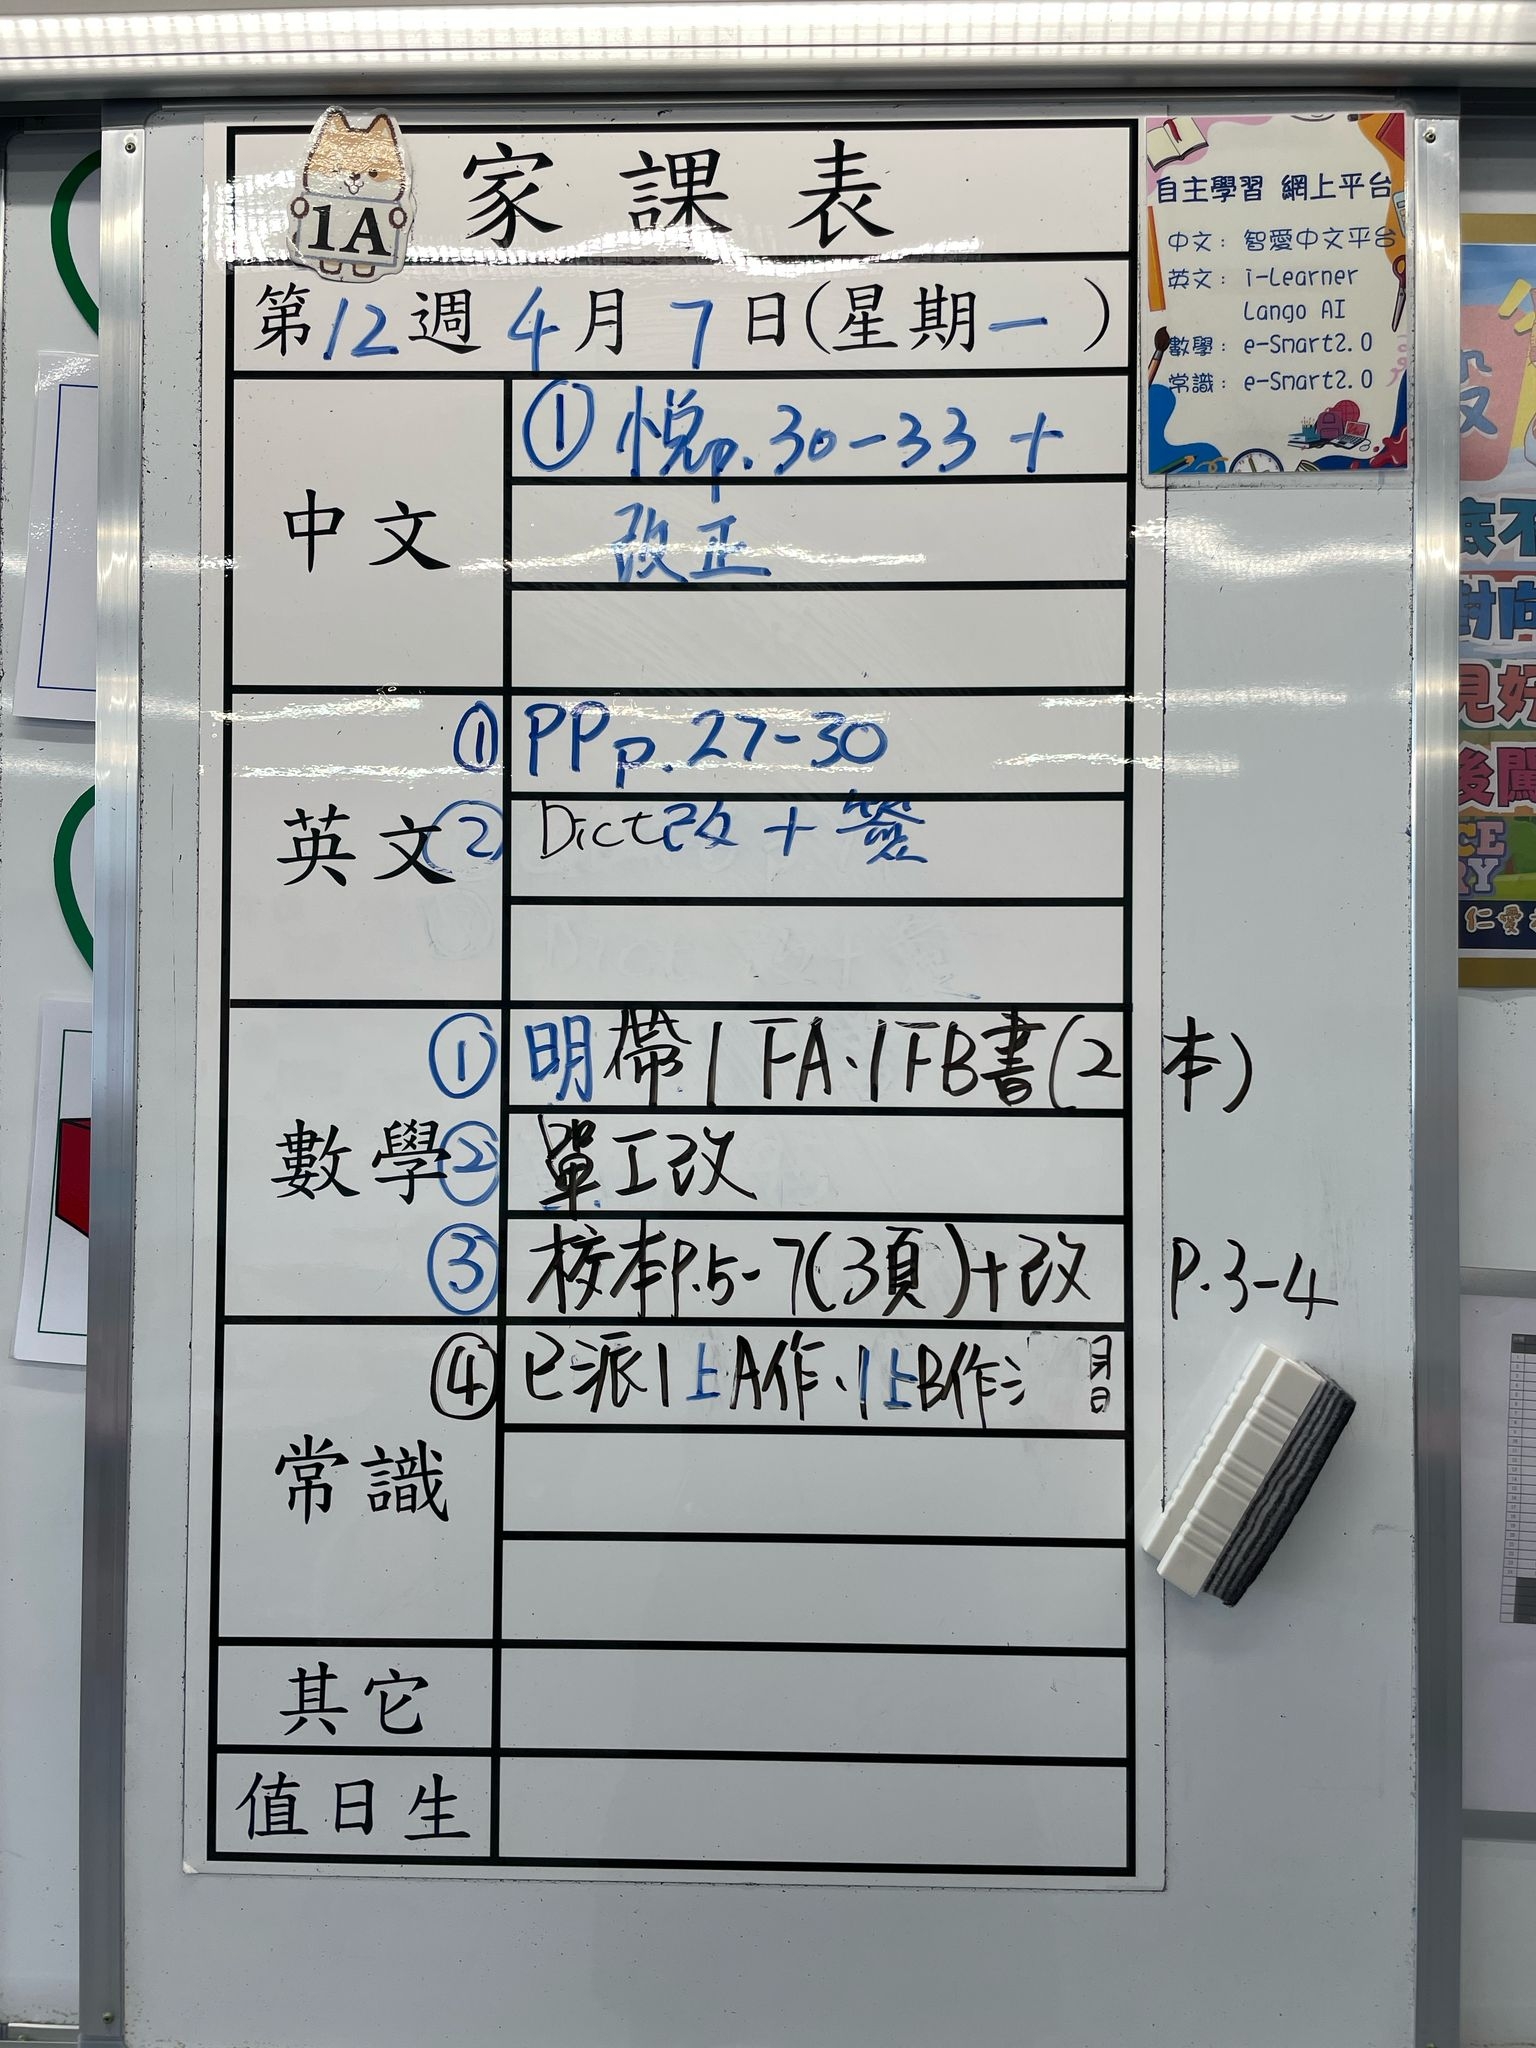 1A
家課表
第12週4月7日(星期一)
中文
① 悅p.30-33 +
改正
英文
① PP p.27-30
② Dict改 + 簽
數學
① 明帶1下A、1下B書(2本)
② 單工改
③ 校本P.5-7(3頁)+改 P.3-4
④ 已派1上A作、1上B作
常識
其它
值日生
自主學習 網上平台
中文: 智愛中文平台
英文: i-Learner
Lango AI
數學: e-Smart2.0
常識: e-Smart2.0
底不
對向
見好
後闖
仁愛